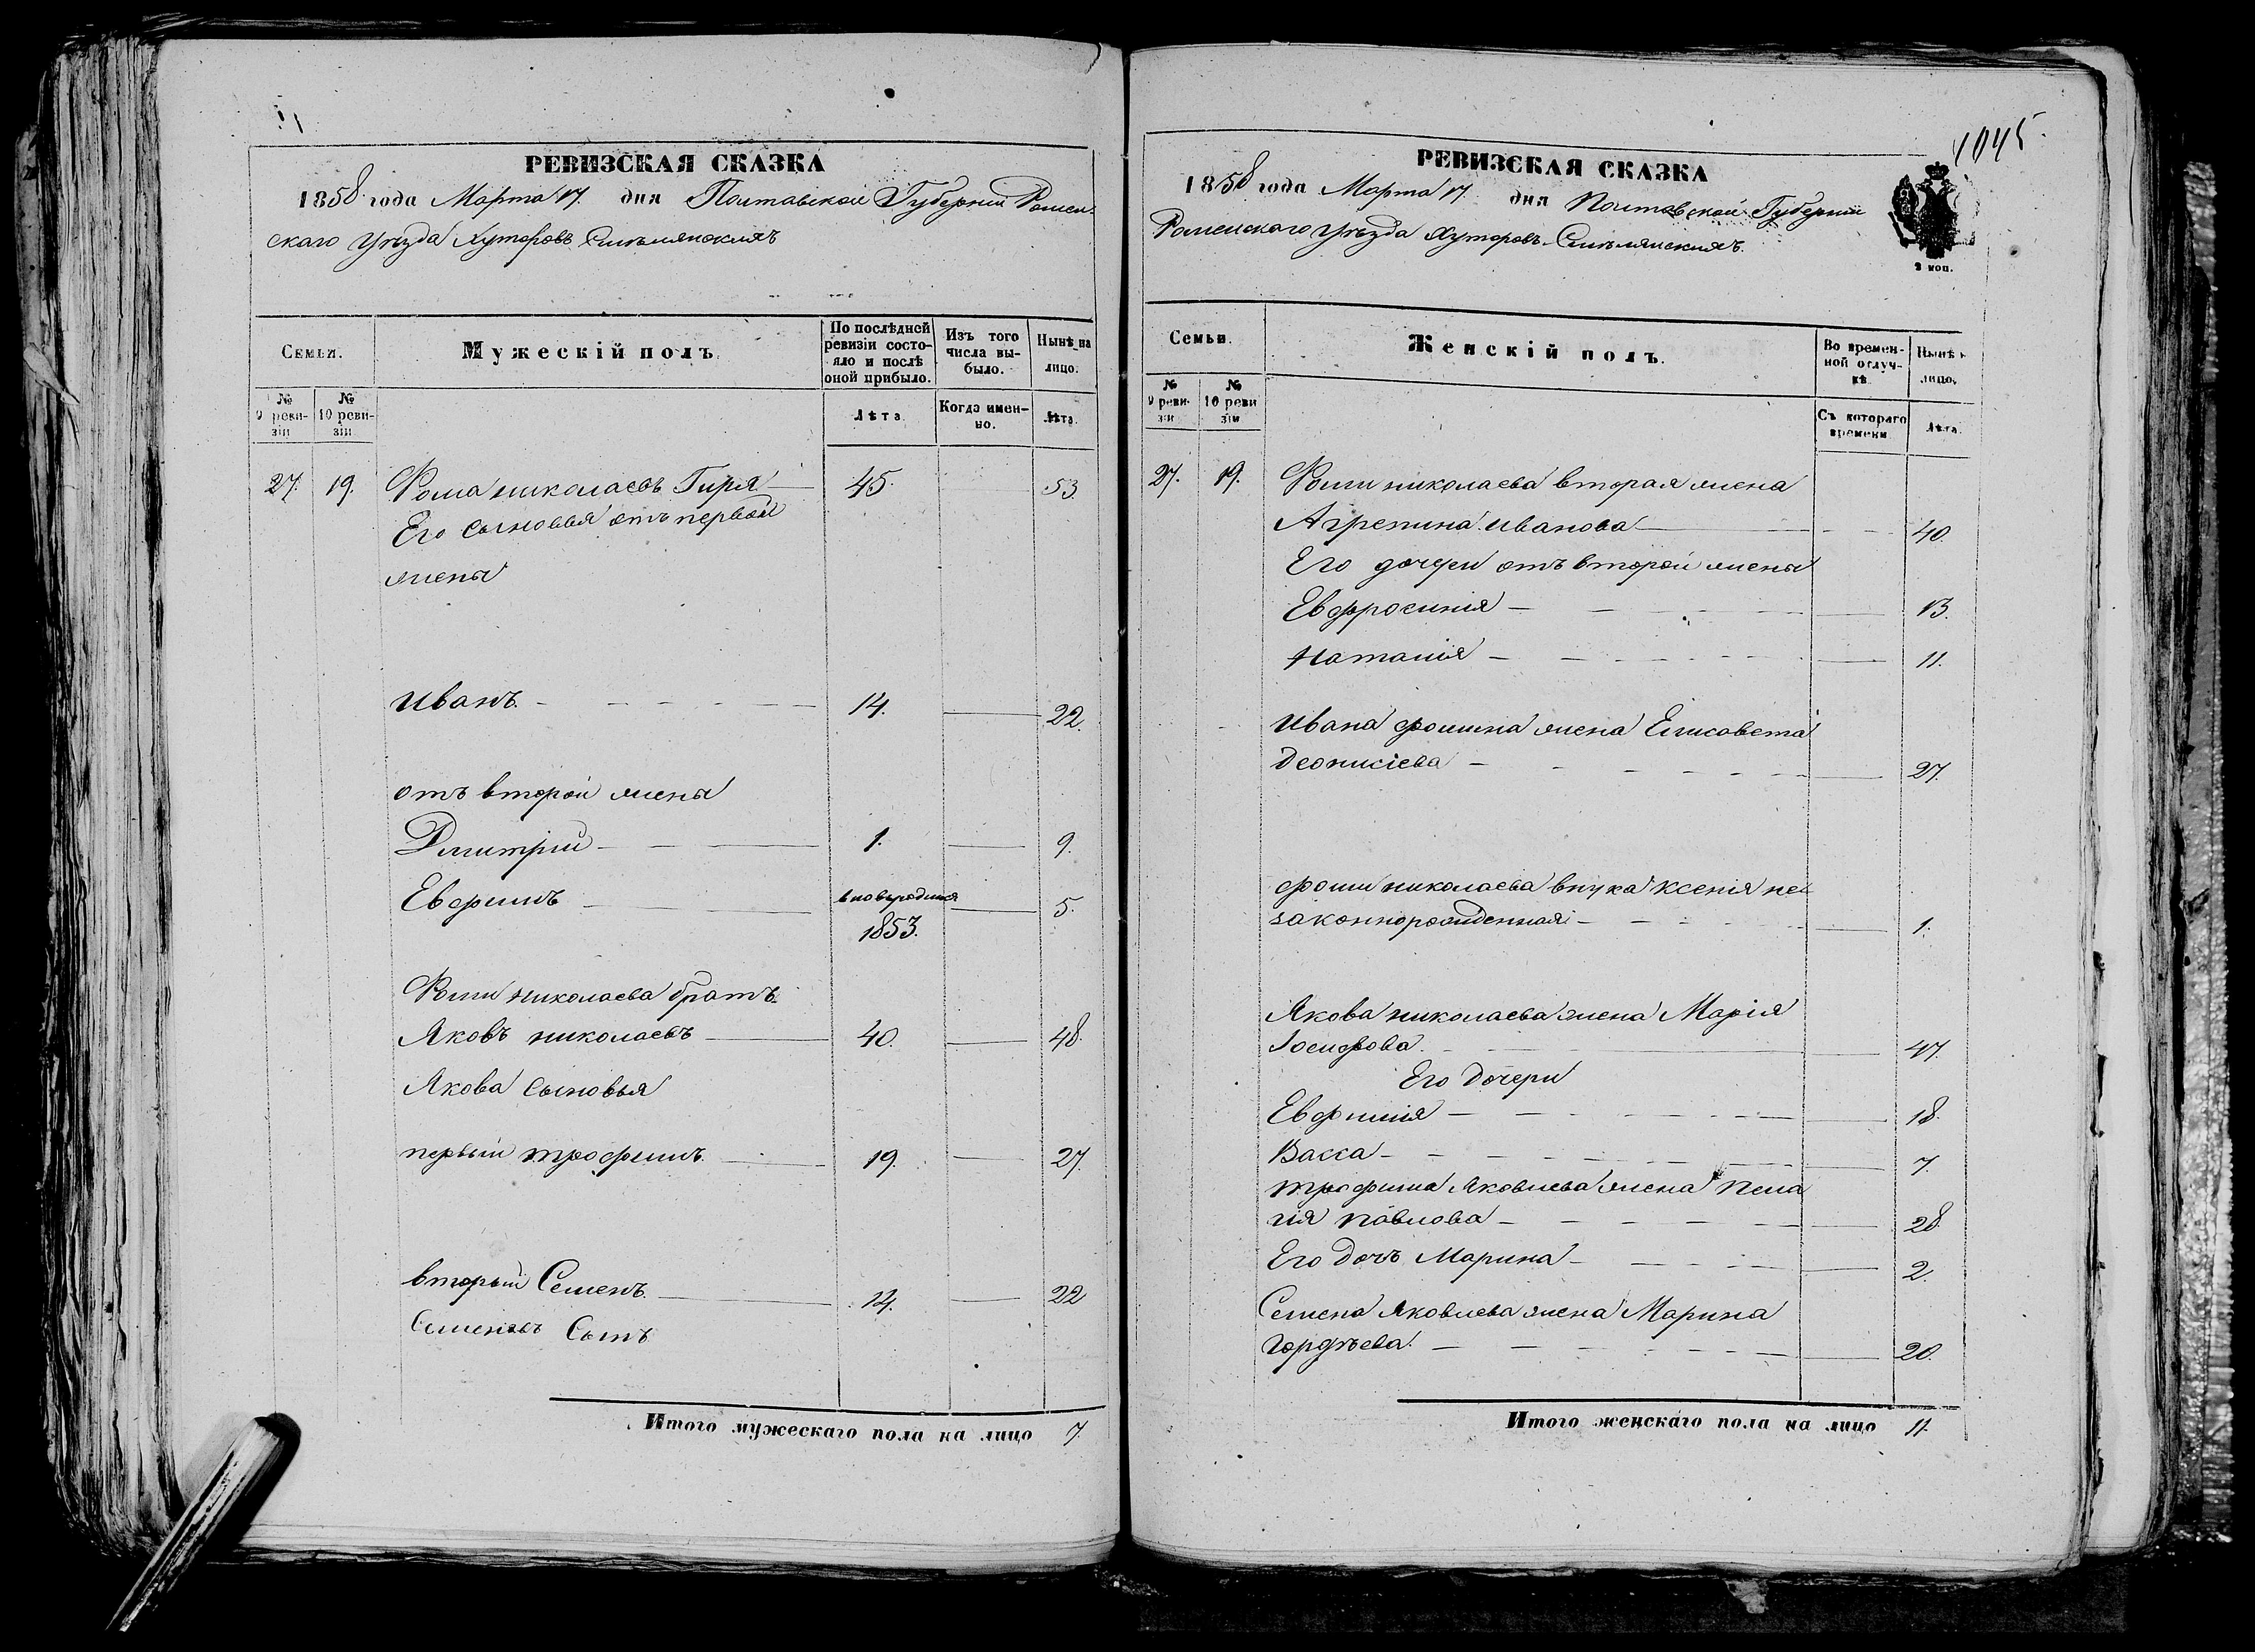 РЕВИЗСКАЯ СКАЗКА
1858 года Марта 17. дня Полтавской Губерніи Ромен
скаго уѣзда хуторовъ Смѣлянскихъ
Семьи.
Мужескій полъ.
По послѣдней ревизіи состояло и послѣ оной прибыло.
Изъ того числа выбыло.
Нынѣ на лицо.
№ 9 ревизіи
№ 10 ревизіи
Лѣта
Когда именно.
Лѣта.
27. 19. Фома николаевъ Гиря 45. 53.
Его сыновья отъ первой
жены
иванъ. 14. 22.
отъ второй жены
Дмитрій 1. 9.
Евфимъ вновьродился 5.
1853.
Фоми николаева братъ
Яковъ николаевъ 40. 48.
Якова сыновья
первый трофимъ 19. 27.
вторый Семенъ 14. 22
Семеновъ Сынъ
Итого мужескаго пола на лицо 7.
1045.
РЕВИЗСКАЯ СКАЗКА
1858 года Марта 17. дня Полтавской Губерніи
Роменскаго уѣзда хуторовъ Смѣлянскихъ.
2 коп.
Семьи.
Женскій полъ.
Во временной отлучкѣ.
Нынѣ
лицо.
№ 9 ревизіи
№ 10 ревизіи
Съ котораго времени
Лѣта.
27. 19. Фоми николаева вторая жена
Агрепина иванова 40.
Его дочери отъ второй жены
Евфросинія 13.
Наталія 11.
ивана фомина жена Елисовета
деонисіева 27.
фоми николаева внука ксенія не
законнорожденная 1.
Якова николаева жена Марія
Іосифова. 47.
Его дочери
Евфимія 18.
Васса 7.
трофима Яковлева жена пела
гія павлова 28
Его дочь Марина 2.
Семена Яковлева жена Марина
гордѣева. 20.
Итого женскаго пола на лицо 11.